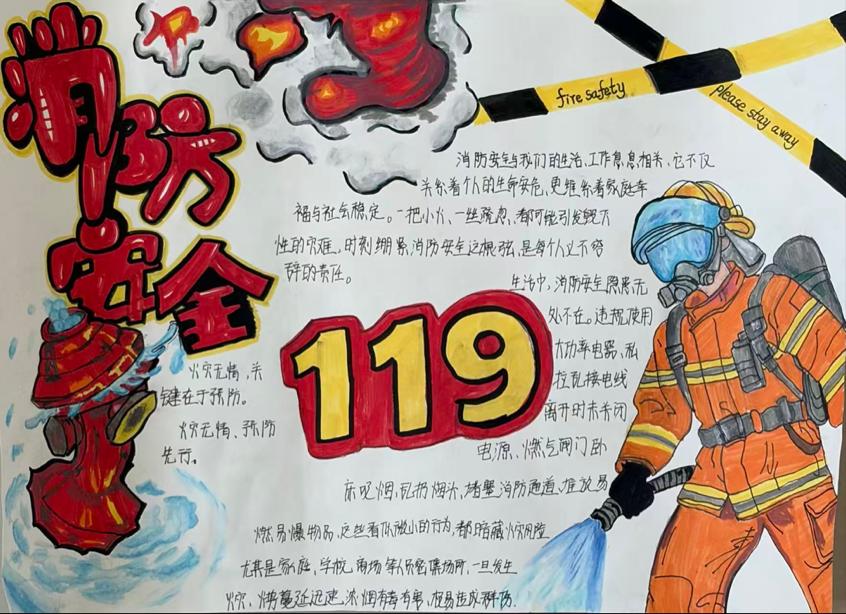 消防
安全
fire safety
please stay away
消防安全与我们的生活、工作息息相关，它不仅
关系着个人的生命安危，更维系着家庭幸
福与社会稳定。一把小火、一丝疏忽，都可能引发毁灭
性的灾难。时刻绷紧消防安全这根弦，是每个人义不容
辞的责任。
生活中，消防安全隐患无
处不在。违规使用
大功率电器、私
拉乱接电线
离开时未关闭
电源、燃气阀门卧
床吸烟、乱扔烟头，堵塞消防通道，堆放易
燃易爆物品，这些看似微小的行为，都暗藏火灾风险
尤其是家庭、学校、商场等人员密集场所，一旦发生
火灾，火势蔓延迅速，浓烟有毒有害，极易造成群伤.
119
火灾无情，关
键在于预防。
火灾无情、预防
先行。